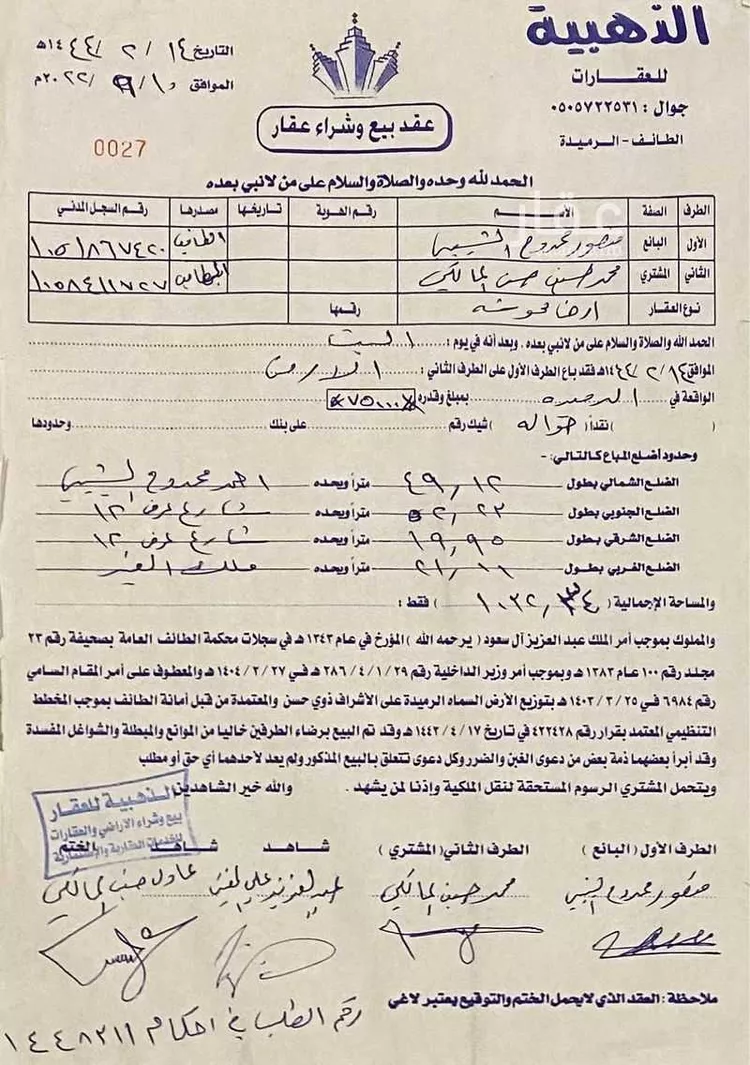 الذهبية
للعقارات
جوال : ٠٥٠٥٧٢٢٥٣١
الطائف - الرميدة
عقد بيع وشراء عقار
التاريخ ١٤ / ٢ / ١٤٤٤هـ
الموافق ١٠ / ٩ / ٢٠٢٢م
0027
الحمد لله وحده والصلاة والسلام على من لا نبي بعده
الطرف الصفة الاسم رقم الهوية تاريخها مصدرها رقم السجل المدني
الأول البائع منصور ممدوح الطائف ١٠٥١٨٦٧٤٢٠
الثاني المشتري محمد حسن المالكي ١٠٥٨٤١١٧٢٧
نوع العقار ارض رقمها
الحمد الله والصلاة والسلام على من لا نبي بعده . وبعد أنه في يوم : السبت
الموافق ١٤ / ٢ / ١٤٤٤هـ فقد باع الطرف الأول على الطرف الثاني : الارض
الواقعة في الرميده بمبلغ وقدره ٧٥٠٠٠
( ) نقداً ( حواله ) شيك رقم على بنك وحدودها
وحدود أضلع المباع كالتالي : -
الضلع الشمالي بطول ٤٩,١٢ متراً ويحده احمد ممدوح
الضلع الجنوبي بطول ٥٢,٢٣ متراً ويحده شارع عرض ١٢
الضلع الشرقي بطول ١٩,٩٥ متراً ويحده شارع عرض ١٢
الضلع الغربي بطول ٢١,١١ متراً ويحده ملك الغير
والمساحة الإجمالية ( ١٠٣٢,٣٤ ) فقط :
والمملوك بموجب أمر الملك عبد العزيز آل سعود ( يرحمه الله ) المؤرخ في عام ١٣٤٣ هـ في سجلات محكمة الطائف العامة بصحيفة رقم ٢٣
مجلد رقم ١٠٠ عام ١٣٨٣ هـ وبموجب أمر وزير الداخلية رقم ٢٨٦/٤/١/٢٩ هـ في ١٤٠٤/٢/٢٧ هـ والمعطوف على أمر المقام السامي
رقم ٦٩٨٤ في ١٤٠٣/٣/٢٥ هـ بتوزيع الأرض السماه الرميدة على الأشراف ذوي حسن والمعتمدة من قبل أمانة الطائف بموجب المخطط
التنظيمي المعتمد بقرار رقم ٤٢٢٤٢٨ في تاريخ ١٤٤٢/٤/١٧ هـ وقد تم البيع برضاء الطرفين خاليا من الموانع والمبطلة والشواغل المفسدة
وقد أبرأ بعضهما ذمة بعض من دعوى الغبن والضرر وكل دعوى تتعلق بالبيع المذكور ولم يعد لأحدهما أي حق أو مطلب
ويتحمل المشتري الرسوم المستحقة لنقل الملكية وإذنا لمن يشهد . والله خير الشاهدين
الذهبية للعقار
بيع وشراء الأراضي والعقارات
الطرف الأول ( البائع ) الطرف الثاني ( المشتري ) شاهد شاهد الختم
منصور ممدوح محمد حسن المالكي عادل المالكي
ملاحظة : العقد الذي لا يحمل الختم والتوقيع يعتبر لاغي
رقم الطلب في احكام ١٤٤٨٢١١
عقار